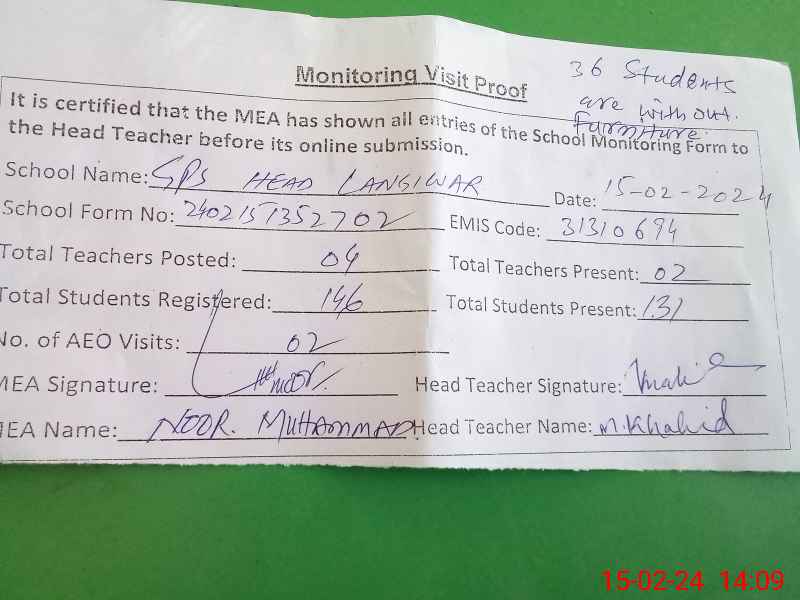 Monitoring Visit Proof
36 Students
are without
Furniture.
It is certified that the MEA has shown all entries of the School Monitoring Form to
the Head Teacher before its online submission.
School Name: GPS HEAD LANGIWAR Date: 15-02-2024
School Form No: 2402151352702 EMIS Code: 31310694
Total Teachers Posted: 04 Total Teachers Present: 02
Total Students Registered: 146 Total Students Present: 131
No. of AEO Visits: 02
MEA Signature: Head Teacher Signature:
MEA Name: NOOR. MUHAMMAD Head Teacher Name: M.Khalid
15-02-24 14:09